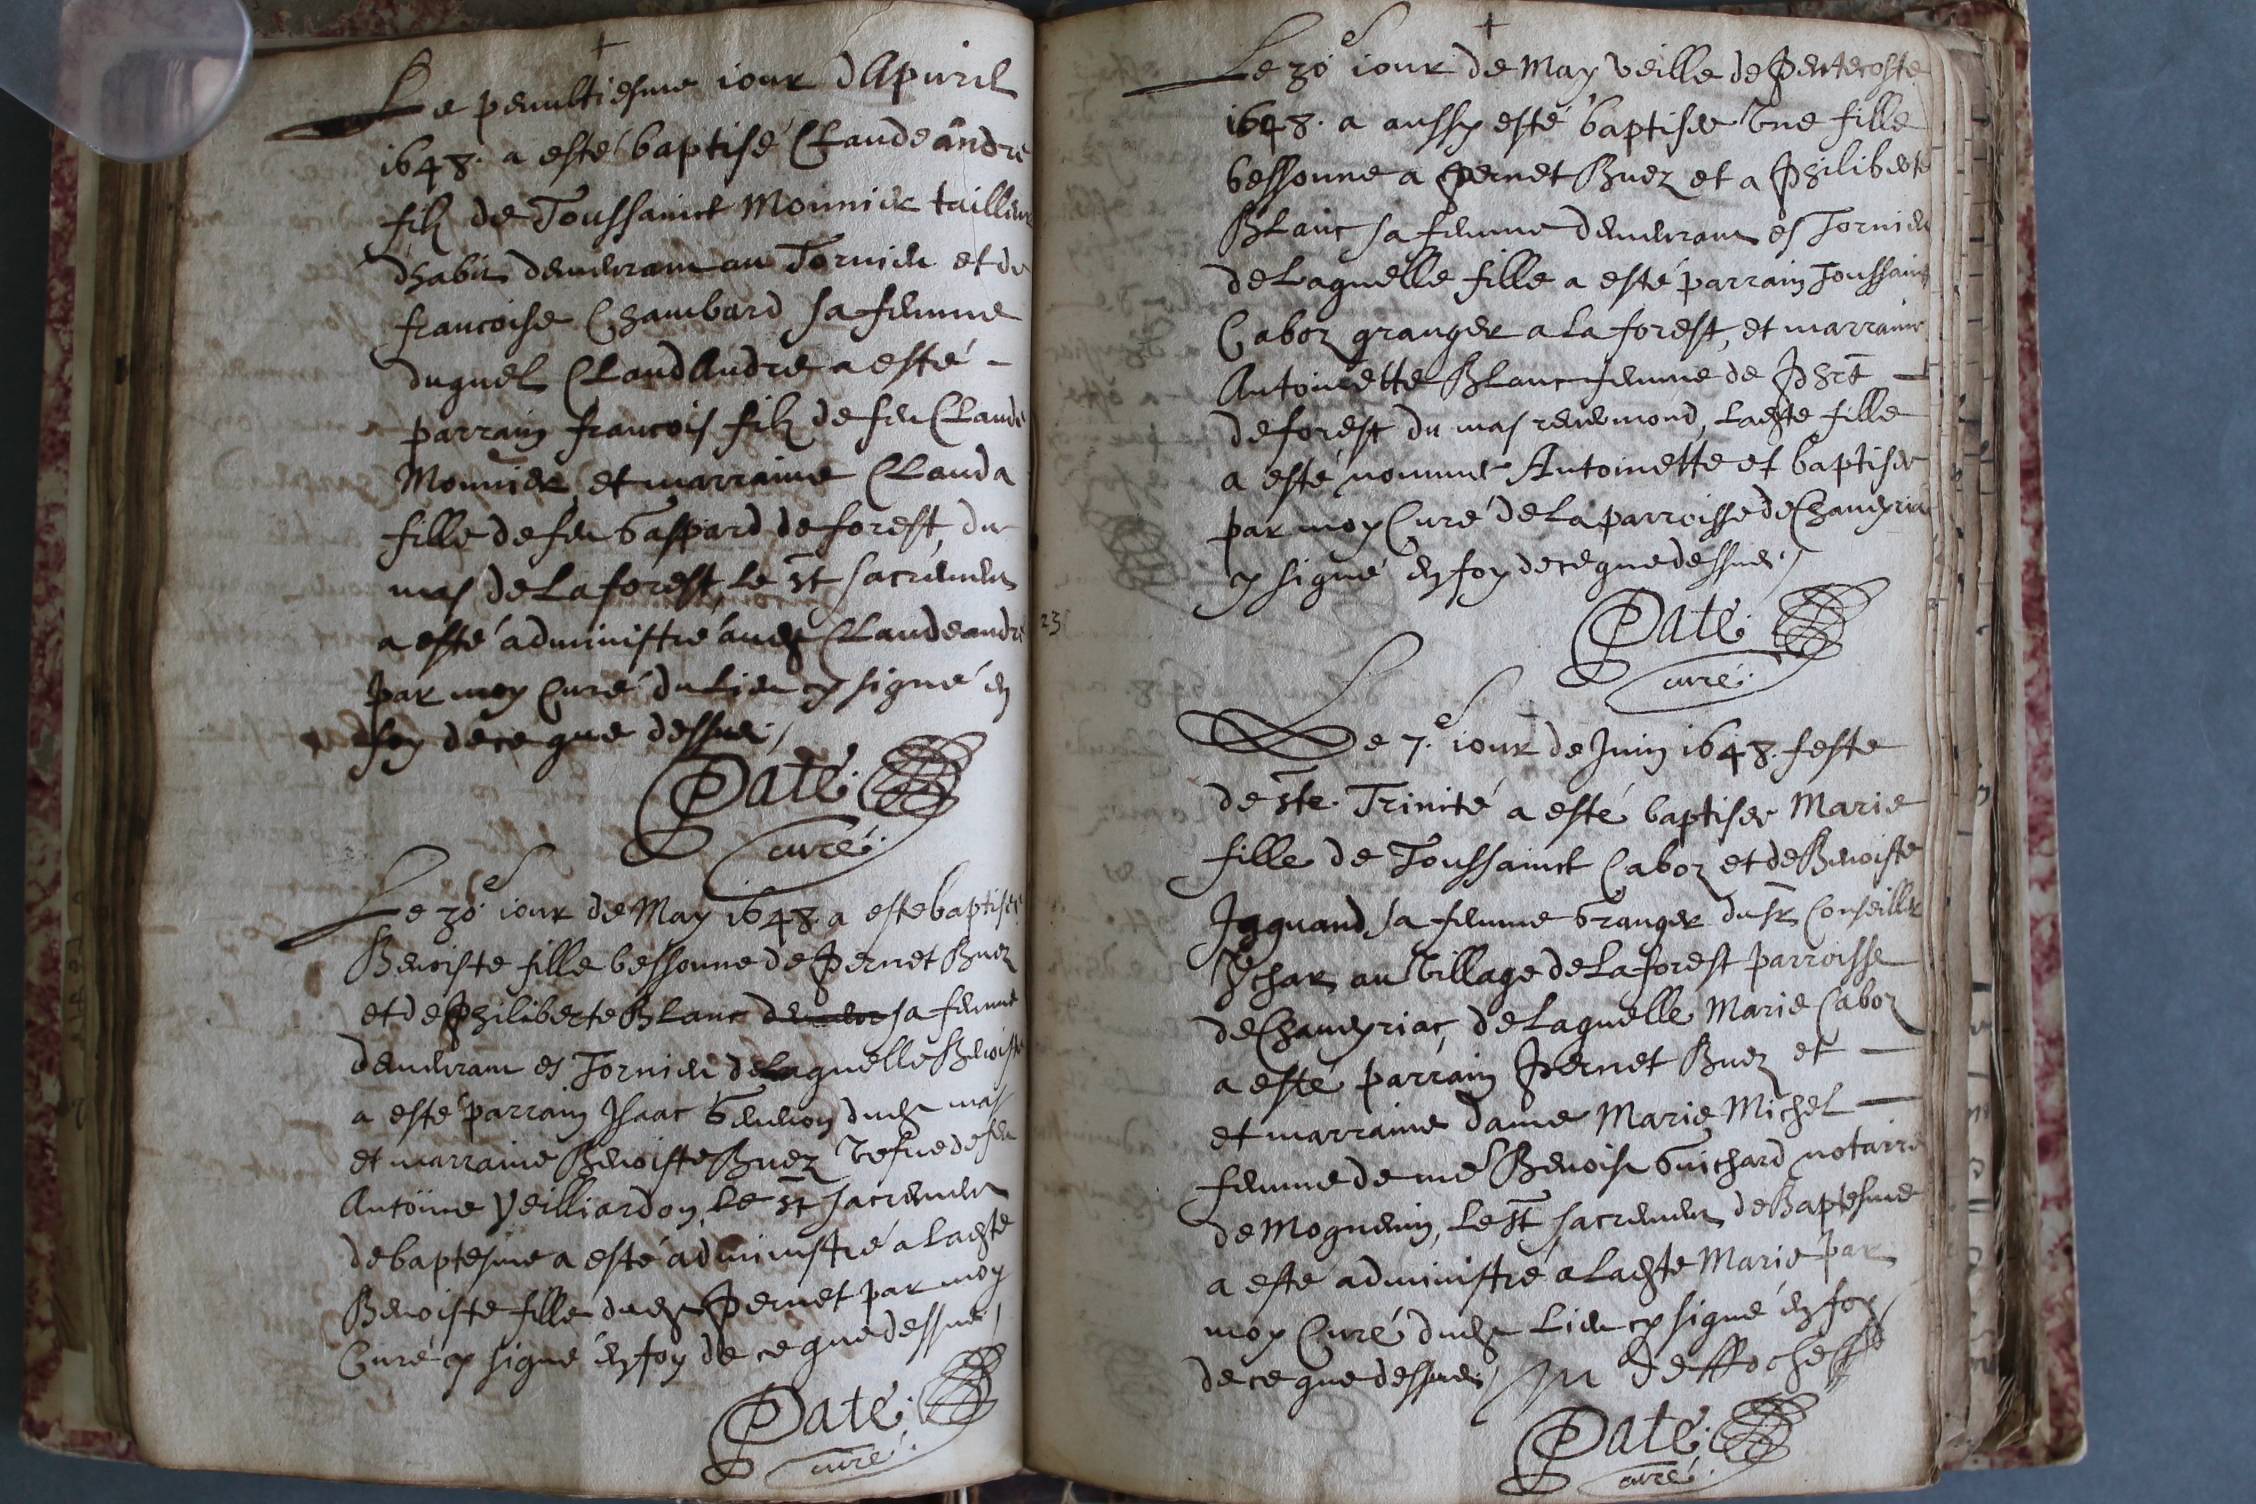 Le penultiesme iour dApuril
1648. a esté baptisé Claude André
filz de Toussainct Monnier tailleur
dhabit demeurant au Tornier et de
francoise Chambard sa femme
duquel Claud André a esté -
parrain francois filz de feu Claude
Monnier, et marraine Clauda
fille de feu Gaspard de forest, du
mas de La forest, le St sacrement
a esté administré audt Claude andre
par moy Curé du Lieu cy signé en
foy de ce que dessus,
Daté.
curé.
Le 30e iour de May 1648 a este baptisee
Benoiste fille bessonne de Pernet Buez
et de Philiberte Blanc sa femme
demeurant es Tornier de Laquelle Benoiste
a esté parrain Isaac dudt mas
et marraine Benoiste Buez vefue de feu
Antoine Veilliardon, Le St sacrement
de baptesme a esté administré a Ladte
Benoiste fille dudt Pernet par moy
Curé cy signé en foy de ce que dessus,
Daté.
curé.
23
Le 30e iour de May veille de Pentecoste
1648. a aussy esté baptisee Une fille
bessonne a Pernet Buez et a Philiberte
Blanc sa femme demeurant es Tornier
de Laquelle fille a esté parrain Toussainct
Caboz granger a La forest, et marraine
Antoinette Blanc femme de
de forest du mas reuermond, Ladte fille
a esté nommee Antoinette et baptisee
par moy Curé de La parroisse de Chaueyria
cy signé en foy de ce que dessus,
Daté.
curé.
Le 7.e iour de Juin 1648. feste
de Ste. Trinité a esté baptisee Marie
fille de Toussainct Caboz et de Benoiste
Jaquand sa femme Granger du Sr Conseiller
Ychar au Village de La forest parroisse
de Chaueyriac, de Laquelle Marie Caboz
a esté parrain Pernet Buez et
et marraine dame Marie Michel
femme de me Benoist Guichard notaire
de Mognenin, Le St sacrement de Baptesme
a esté administré a Ladte Marie par
moy Curé dudt Lieu cy signé en foy
de ce que dessus,
Daté.
curé.